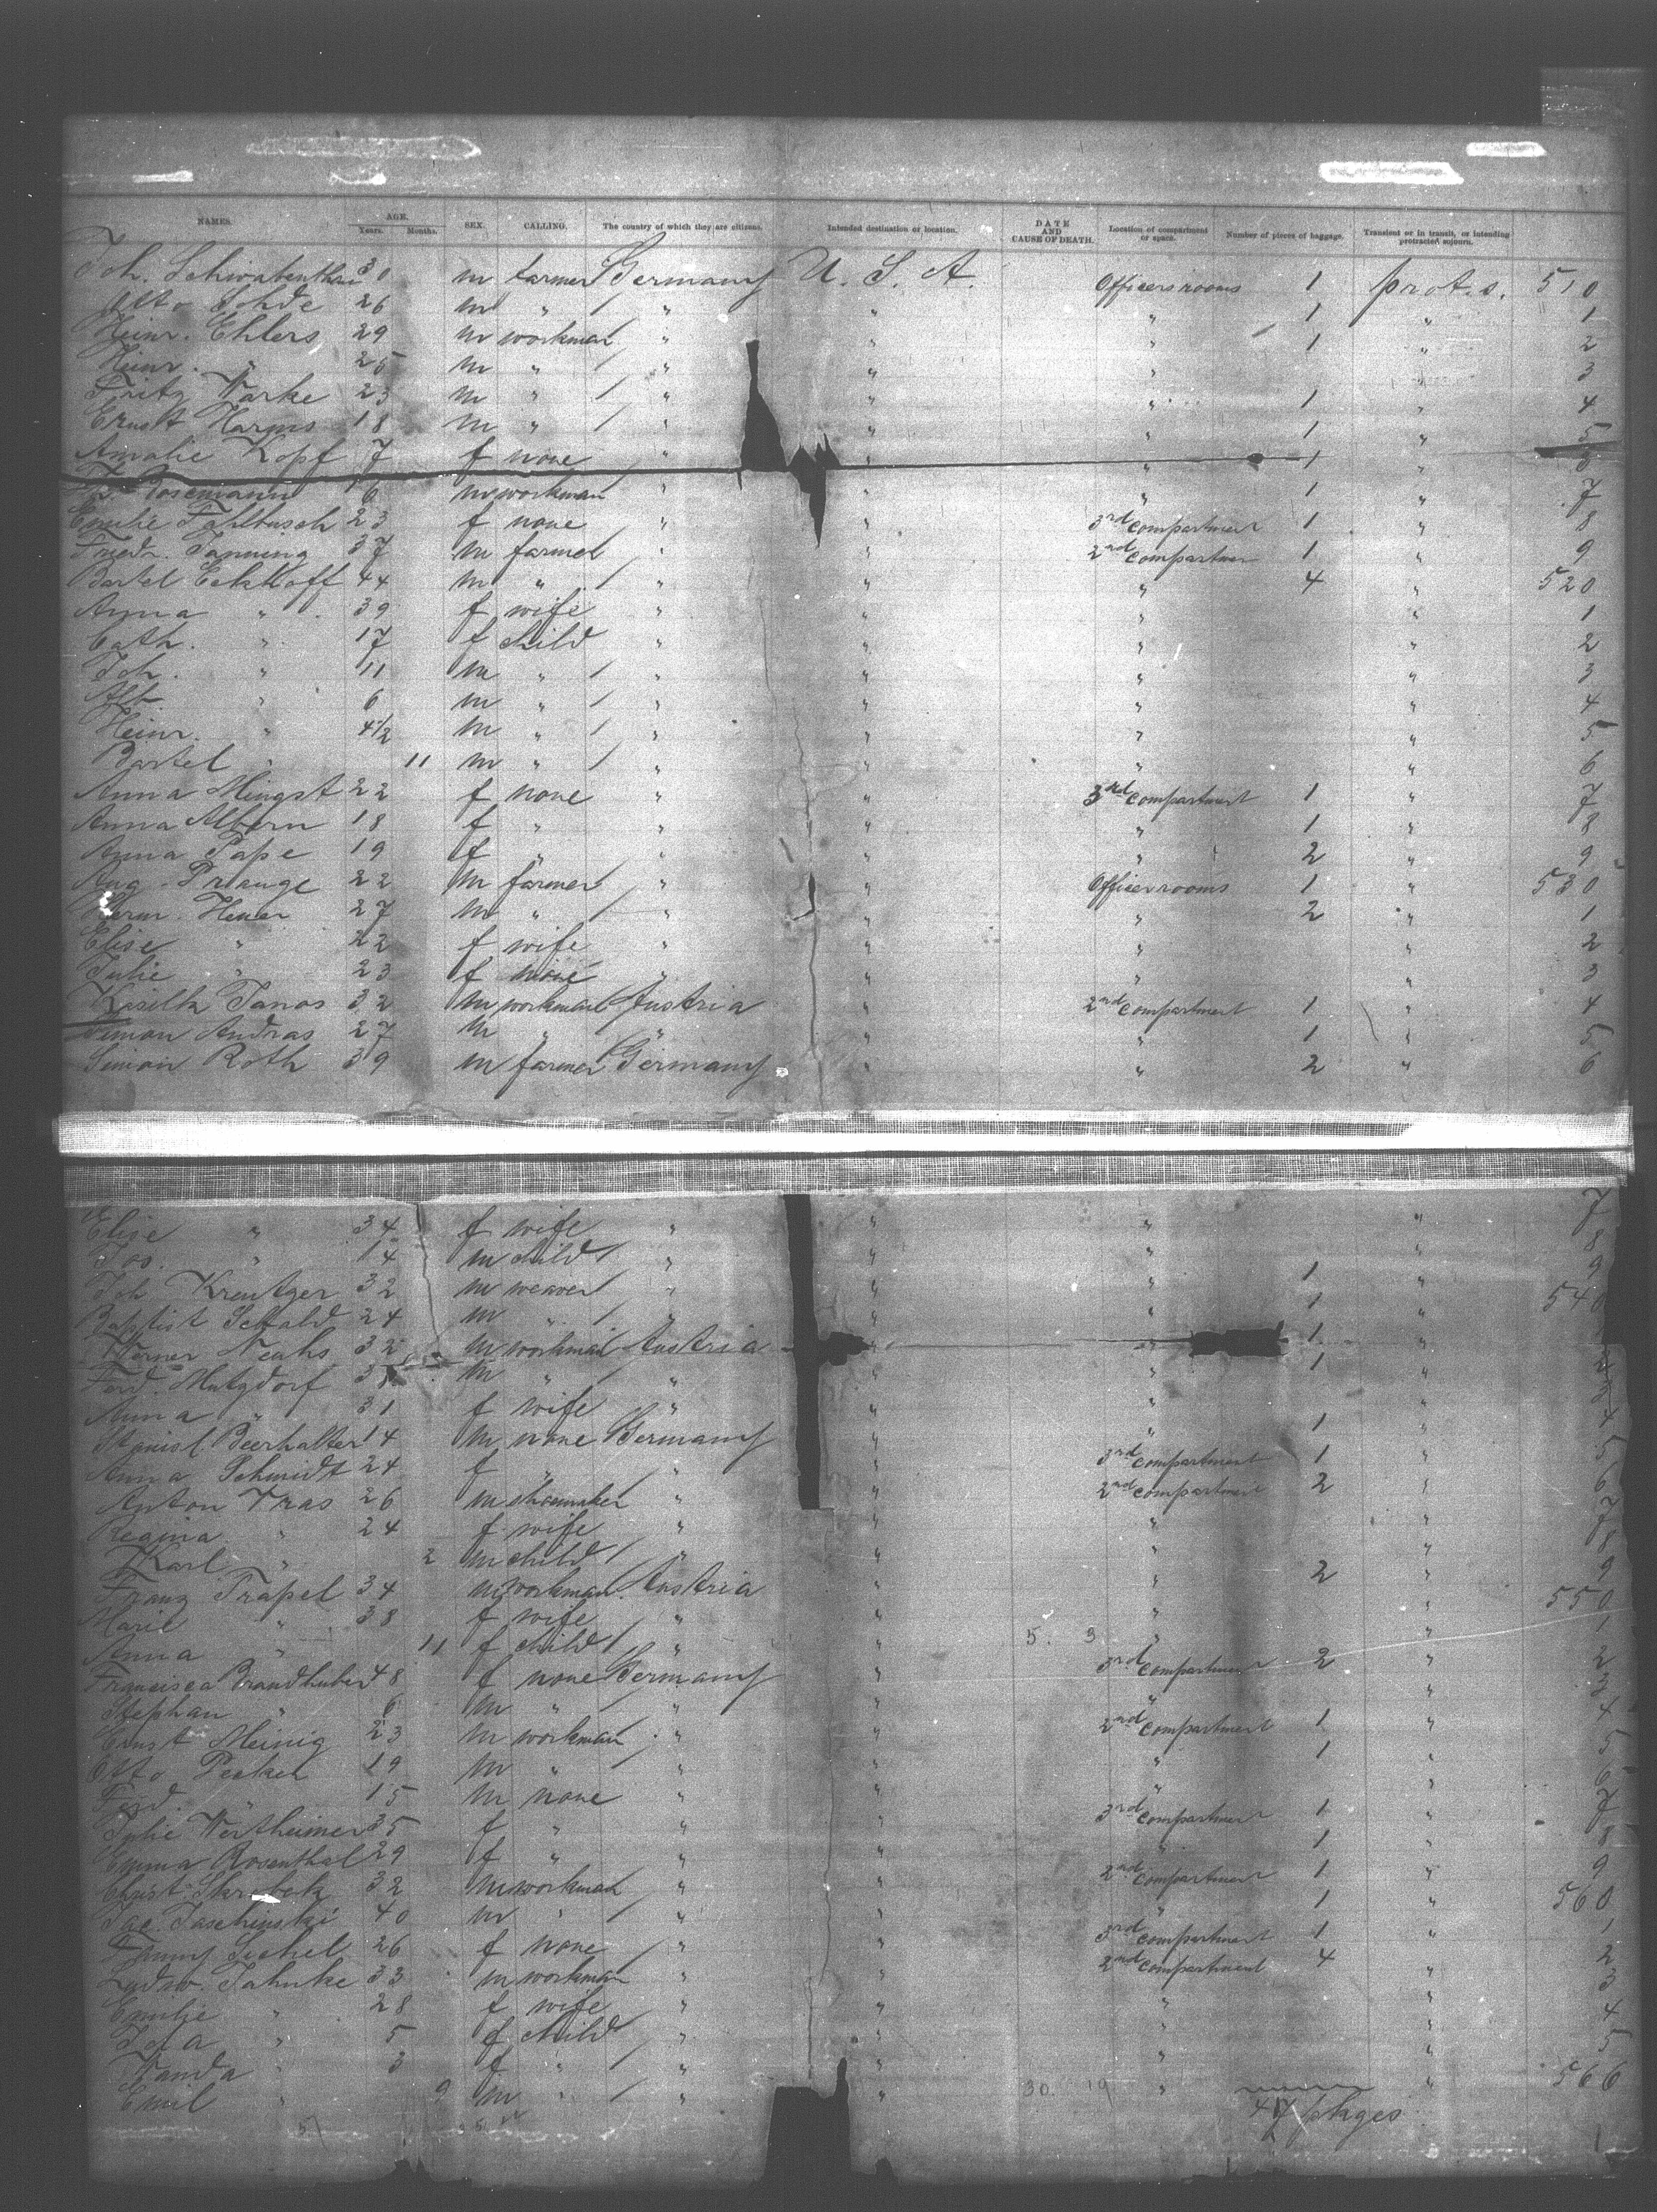 NAMES. AGE. Years. Months. SEX. CALLING. The country of which they are citizens. Intended destination or location. DATE AND CAUSE OF DEATH. Location of compartment or space. Number of pieces of baggage. Transient or in transit, or intending protracted sojourn.
Joh. 30 m farmer Germany U. S. A. Officers rooms 1 prot. s. 510
Otto Rohde 26 m " / " " " 1 " 1
Heinr. Ehlers 29 m workman / " " " 1 " 2
Heinr. " 25 m " / " " " " 3
Fritz Warke 23 m " / " " " 1 " 4
Ernst Harms 18 m " / " " " 1 " 5
Amalie Kopf 7 f none " " " 1 "
Rosemann m workman " " " 1 " 7
Emilie Fahlbusch 23 f none " " 3rd compartment 1 " 8
Friedr. Janning 37 m farmer " " 2nd compartment 1 " 9
Bartel Eckhoff 44 m " / " " " 4 " 520
Anna " 39 f wife " " " " 1
Cath. " 17 f child " " " " 2
Joh. " 11 m " / " " " " 3
Alb. " 6 m " / " " " " 4
Heinr. " 4 1/2 m " / " " " " 5
Bartel " 11 m " / " " " " 6
Anna Mingst 22 f none " " 3rd compartment 1 " 7
Anna Albern 18 f " " " " 1 " 8
Anna Pape 19 f " " " " 2 " 9
Aug. Prange 22 m farmer / " " Officers rooms 1 " 530
Herm. Heuer 27 m " / " " " 2 " 1
Elise " 22 f wife " " " " 2
Julie " 23 f none " " " " 3
Janos 32 m workman Austria " 2nd compartment 1 " 4
Simon Andras 27 m " " " " 1 " 5
Simon Roth 39 m farmer Germany " " 2 " 6
Elise " 34 f wife " " " " 7
Jos. " 14 m child / " " " " 8
Joh. Kreutzer 32 m weaver / " " " 1 " 9
Baptist Sebald 24 m " / " " " 1 " 540
Werner Neahs 32 m workman Austria " " 1 "
Ferd. Mutzdorf m " " " " 1 " 2
Anna " 31 f wife " " " " 3
Stanisl. Beerhalter 14 m none Germany " " 1 " 4
Anna Schmidt 24 f " " " 3rd compartment 1 " 5
Anton Vras 26 m shoemaker " " 2nd compartment 2 " 6
Regina " 24 f wife " " " " 7
Karl " 2 m child / " " " " 8
Franz Trapel 34 m workman Austria " " 2 " 9
Marie " 38 f wife " " " " 550
Anna " 11 f child / " " 5. 3 " " 1
Francisca Brandhuber 48 f none Germany " 3rd compartment 2 " 2
Stephan " 6 m " / " " " " 3
Ernst Meinig 23 m workman / " " 2nd compartment 1 " 4
Otto Pecker 19 m " / " " " 1 " 5
Ferd. " 15 m none " " " " 6
Julie Wertheimer 35 f " " " 3rd compartment 1 " 7
Emma Rosenthal 29 f " " " " 1 " 8
Christ. Skrobek 32 m workman " " 2nd compartment 1 " 9
Jac. Jaschinski 40 m " / " " " 1 " 560
Fanny Sichel 26 f none " " 3rd compartment 1 " 1
Ludw. Jahnke 33 m workman " " 2nd compartment 4 " 2
Emilie " 28 f wife " " " " 3
Ida " 5 f child / " " " " 4
Wanda " 3 f " / " " " " 5
Emil " 9 m " / " " 30. 19 " " 566
47 pkges